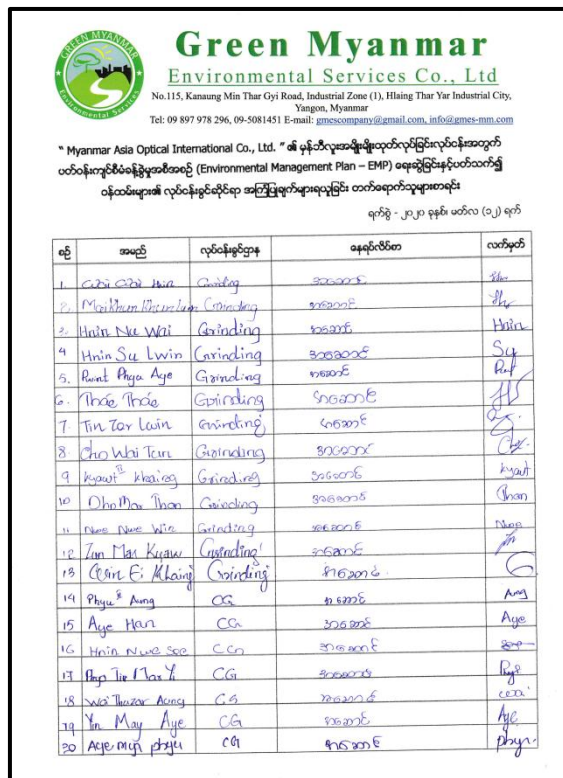 GREEN MYANMAR
Environmental Services
Green Myanmar
Environmental Services Co., Ltd
No.115, Kanaung Min Thar Gyi Road, Industrial Zone (1), Hlaing Thar Yar Industrial City,
Yangon, Myanmar
Tel: 09 897 978 296, 09-5081451 E-mail: gmescompany@gmail.com, info@gmes-mm.com
" Myanmar Asia Optical International Co., Ltd. " ၏ မှန်ဘီလူးအမျိုးမျိုးထုတ်လုပ်ခြင်းလုပ်ငန်းအတွက်
ပတ်ဝန်းကျင်စီမံခန့်ခွဲမှုအစီအစဉ် (Environmental Management Plan – EMP) ရေးဆွဲခြင်းနှင့်ပတ်သက်၍
ဝန်ထမ်းများ၏ လုပ်ငန်းခွင်ဆိုင်ရာ အကြံပြုချက်များရယူခြင်း တက်ရောက်သူများစာရင်း
ရက်စွဲ - ၂၀၂၀ ခုနှစ်၊ မတ်လ (၁၂) ရက်
စဉ် အမည် လုပ်ငန်းခွင်ဌာန နေရပ်လိပ်စာ လက်မှတ်
1. Grinding အဆောင်
2. Grinding အဆောင်
3. Hnin Nu Wai Grinding အဆောင် Hnin
4 Hnin Su Lwin Grinding အဆောင် Su
5. Phyu Aye Grinding အဆောင်
6. Grinding အဆောင်
7 Tin Zar Lwin Grinding အဆောင်
8 Cho Wai Tun Grinding အဆောင်
9 Kyawt Khaing Grinding အဆောင် kyawt
10 Than Grinding အဆောင် Than
11 Nwe Nwe Win Grinding အဆောင် Nwe
12 Zun Mar Kyaw Grinding အဆောင်
13 Ei Khaing Grinding အဆောင်
14 Phyu Aung CG အဆောင် Aung
15 Aye Han CG အဆောင် Aye
16 Hnin Nwe Soe CG အဆောင်
17 CG အဆောင်
18 Wai Thuzar Aung CG အဆောင်
19 Yin May Aye CG အဆောင် Aye
20 Aye myn phyu CG အဆောင် phyu.